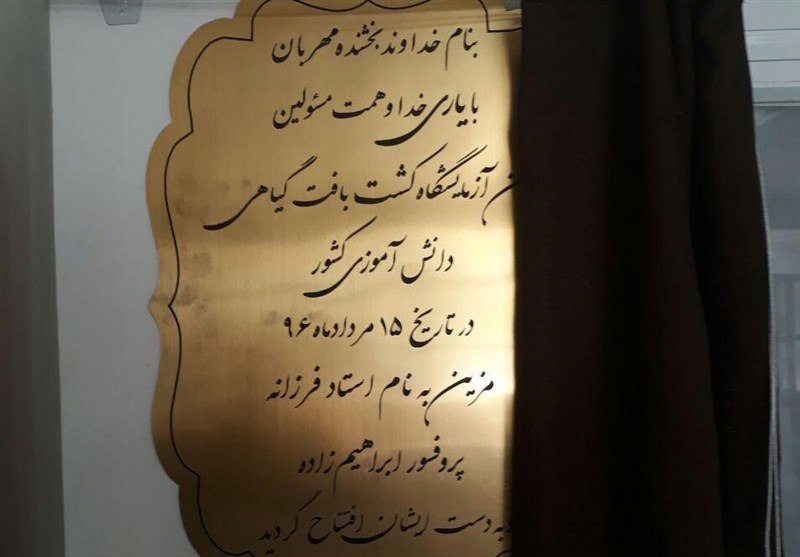 بنام خداوند بخشنده مهربان
با یاری خدا و همت مسئولین
آزمایشگاه کشت بافت گیاهی
دانش آموزی کشور
در تاریخ ۱۵ مردادماه ۹۶
مزین به نام استاد فرزانه
پروفسور ابراهیم زاده
به دست ایشان افتتاح گردید